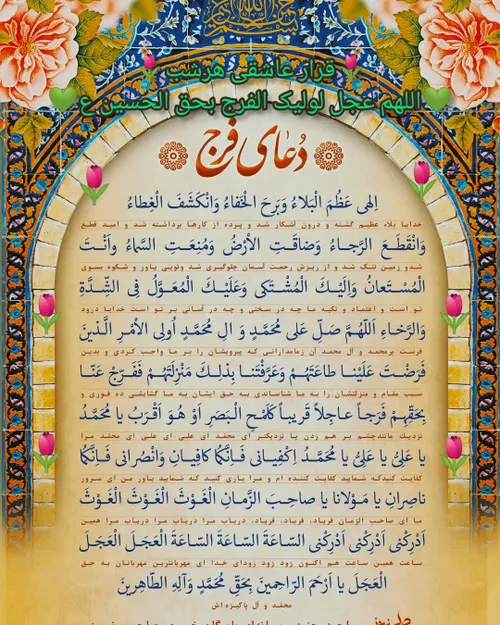 قرار عاشقی هرشب
اللهم عجل لولیک الفرج بحق الحسین ع
دُعای فرج
اِلهی عَظُمَ الْبَلاءُ وَبَرِحَ الْخَفاءُ وَانْکَشَفَ الْغِطاءُ
خدایا بلاء عظیم گشته و درون آشکار شد و پرده از کارها برداشته شد و امید قطع
وَانْقَطَعَ الرَّجاءُ وَضاقَتِ الْاَرْضُ وَمُنِعَتِ السَّماءُ وَاَنْتَ
شد و زمین تنگ شد و از ریزش رحمت آسمان جلوگیری شد و تویی یاور و شکوه بسوی
الْمُسْتَعانُ وَاِلَیْکَ الْمُشْتَکی وَعَلَیْکَ الْمُعَوَّلُ فِی الشِّدَّةِ
تو است و اعتماد و تکیه ما چه در سختی و چه در آسانی بر تو است خدایا درود
وَالرَّخاءِ اَللّهُمَّ صَلِّ عَلی مُحَمَّدٍ وَ الِ مُحَمَّدٍ اُولِی الْاَمْرِ الَّذینَ
فرست بر محمد و آل محمد آن زمامدارانی که پیرویشان را بر ما واجب کردی و بدین
فَرَضْتَ عَلَیْنا طاعَتَهُمْ وَعَرَّفْتَنا بِذلِکَ مَنْزِلَتَهُمْ فَفَرِّجْ عَنّا
سبب مقام و منزلتشان را به ما شناساندی به حق ایشان به ما گشایشی ده فوری و
بِحَقِّهِمْ فَرَجاً عاجِلاً قَریباً کَلَمْحِ الْبَصَرِ اَوْ هُوَ اَقْرَبُ یا مُحَمَّدُ
نزدیک مانند چشم بر هم زدن یا نزدیکتر ای محمد ای علی ای علی ای محمد مرا
یا عَلِیُّ یا عَلِیُّ یا مُحَمَّدُ اِکْفِیانی فَاِنَّکُما کافِیانِ وَانْصُرانی فَاِنَّکُما
کفایت کنید که شمایید کفایت کننده ام و مرا یاری کنید که شمایید یاور من ای سرور
ناصِرانِ یا مَوْلانا یا صاحِبَ الزَّمانِ الْغَوْثَ الْغَوْثَ الْغَوْثَ
ما ای صاحب الزمان فریاد، فریاد، فریاد، دریاب مرا دریاب مرا دریاب مرا همین
اَدْرِکْنی اَدْرِکْنی اَدْرِکْنی السّاعَةَ السّاعَةَ السّاعَةَ الْعَجَلَ الْعَجَلَ
ساعت همین ساعت هم اکنون زود زود زود ای خدای ای مهربانترین مهربانان به حق
الْعَجَلَ یا اَرْحَمَ الرّاحِمینَ بِحَقِّ مُحَمَّدٍ وَآلِهِ الطّاهِرینَ
محمد و آل پاکیزه اش